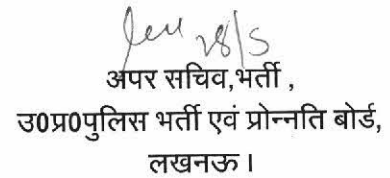 28/5
अपर सचिव,भर्ती ,
उ0प्र0पुलिस भर्ती एवं प्रोन्नति बोर्ड,
लखनऊ।